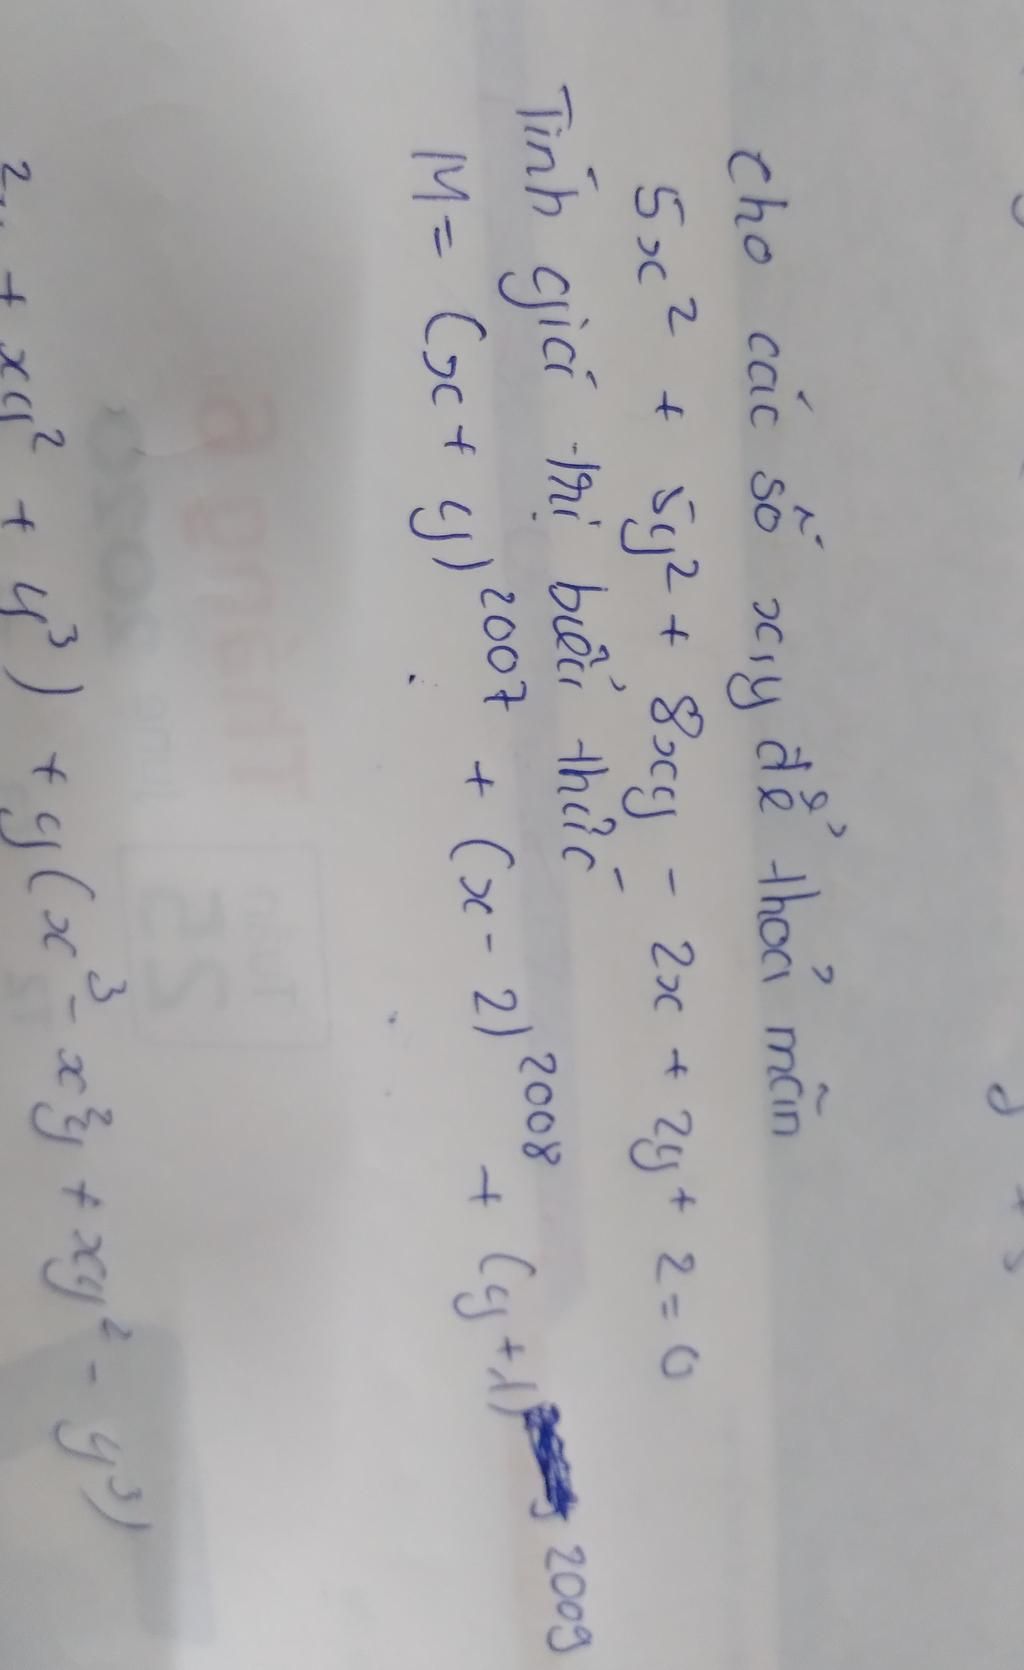 Cho các số x,y để thoả mãn
5x² + 5y² + 8xy - 2x + 2y + 2 = 0
Tính giá trị biểu thức
M = (x + y)²⁰⁰⁷ + (x - 2)²⁰⁰⁸ + (y + 1) 2009
+ xy² + y³) + y(x³ - x²y + xy² - y³)